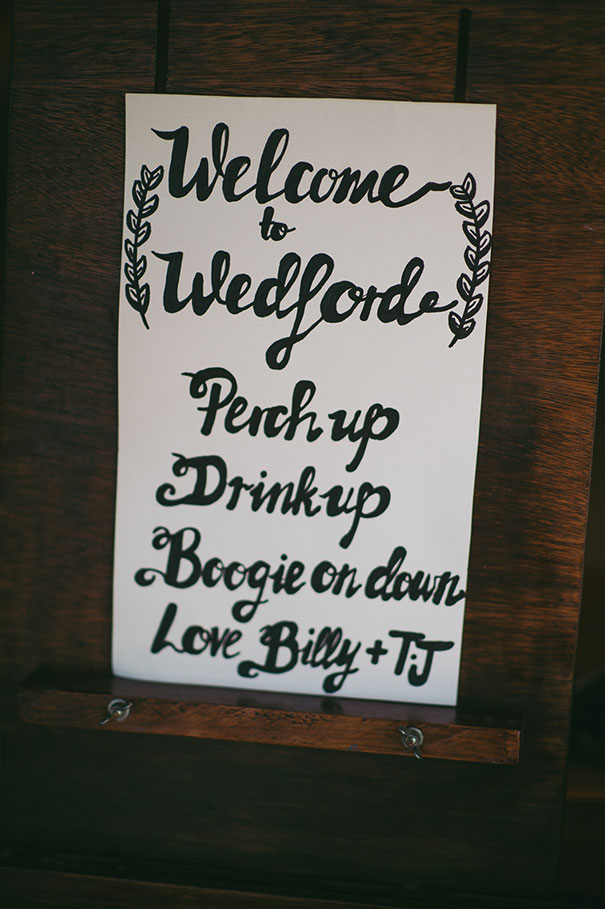 Welcome
to
Wedforde
Perch up
Drink up
Boogie on down
Love Billy + T.J